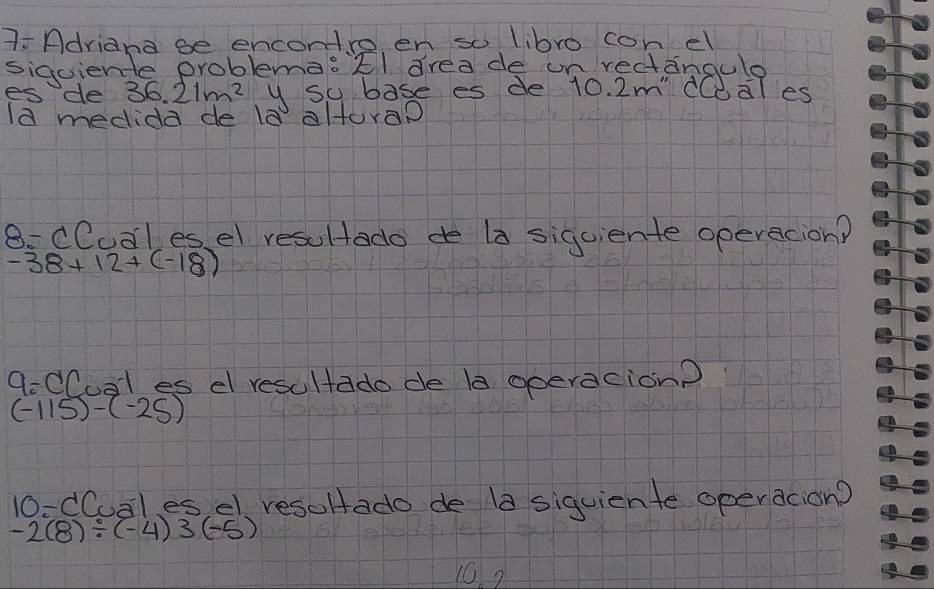 7.- Adriana se encontro en su libro con el
siguiente problema: El área de un rectángulo
es de 36.21m² y su base es de 10.2m" ¿Cuál es
la medida de la altura?
8.- ¿Cuál es el resultado de la siguiente operacion?
-38+12+(-18)
9.- ¿Cuál es el resultado de la operacion?
(-115)-(-25)
10.- ¿Cuál es el resultado de la siguiente operacion?
-2(8)÷(-4)3(-5)
10.2